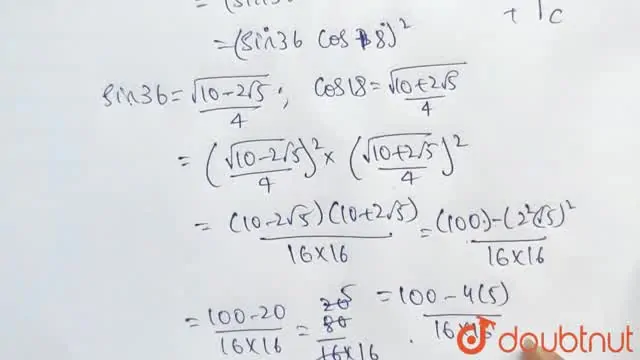 = (sin
+ 1c
= (sin36° cos 18°)²
sin36 = √10-2√5/4 ; cos18 = √10+2√5/4
= (√10-2√5/4)² × (√10+2√5/4)²
= (10-2√5)(10+2√5)/16×16 = (100)-(2²(√5)²/16×16
= 100-4(5)/16×16
= 100-20/16×16 = 80/16×16
20 5
doubtnut